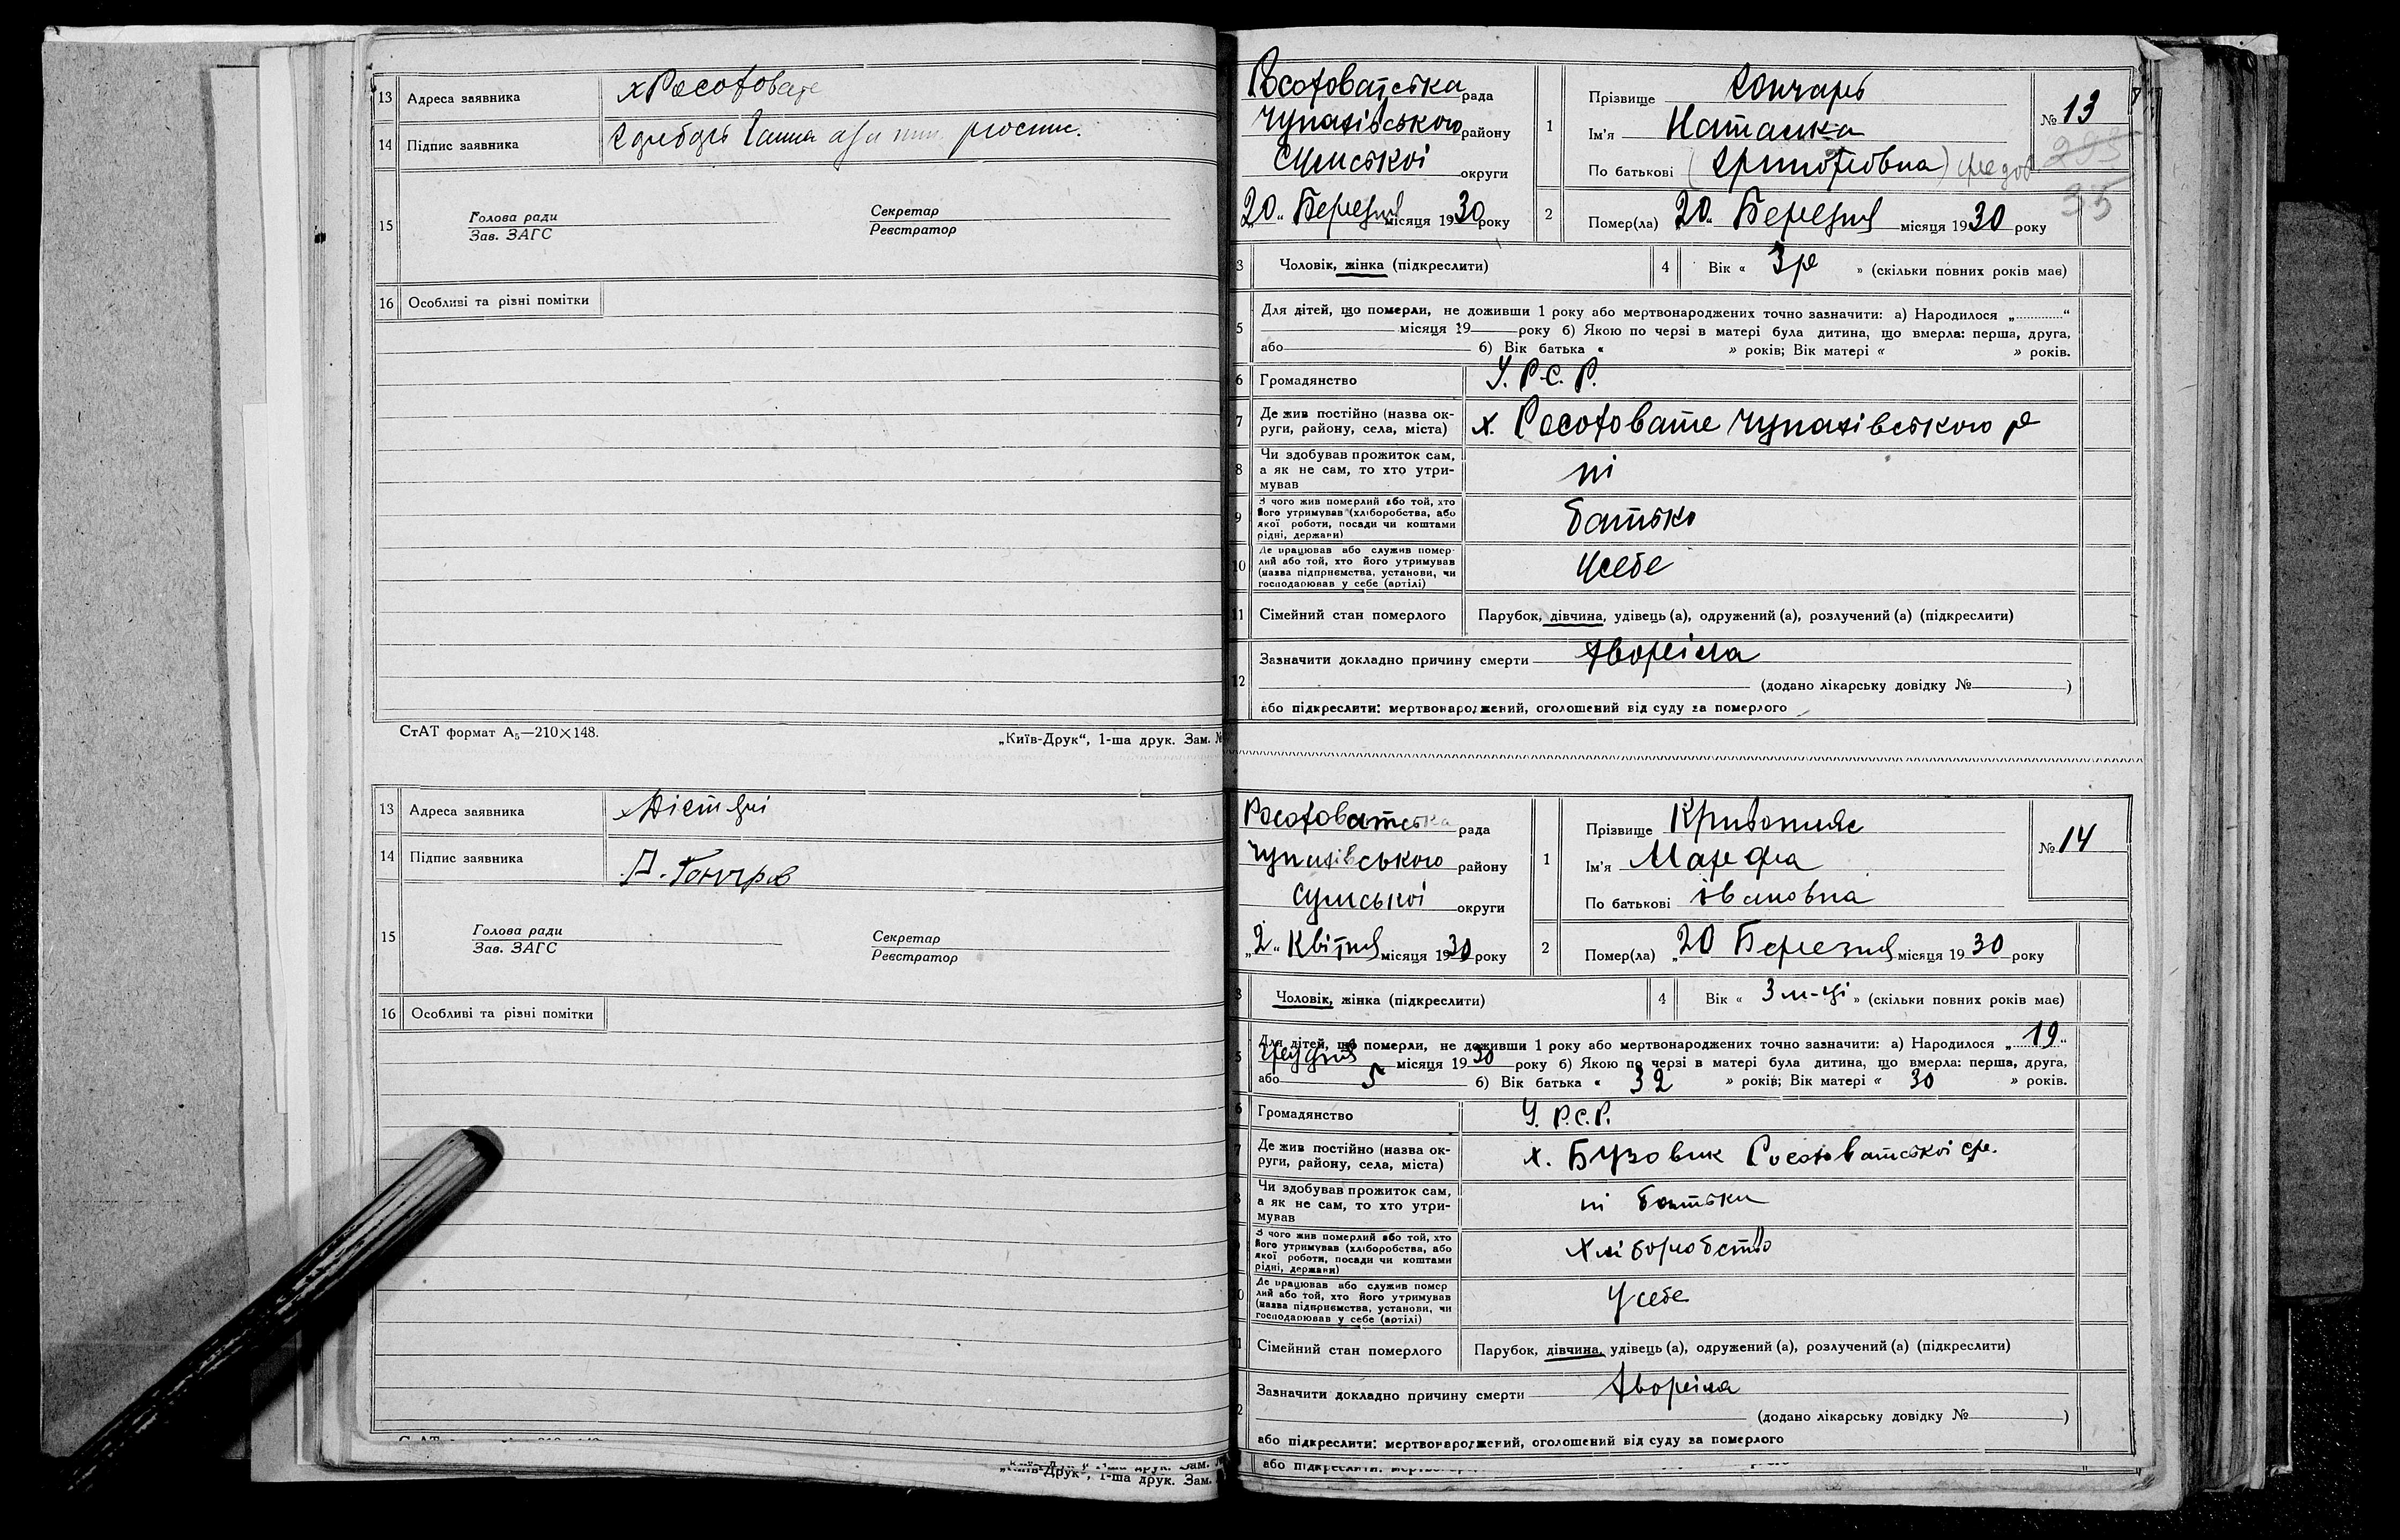 13 Адреса заявника х Росоховате
14 Підпис заявника
15 Голова ради Секретар
Зав. ЗАГС Реєстратор
16 Особливі та різні помітки
СтАТ формат А₅—210×148.
„Київ-Друк“, 1-ша друк. Зам. №
13 Адреса заявника
14 Підпис заявника
15 Голова ради Секретар
Зав. ЗАГС Реєстратор
16 Особливі та різні помітки
„Київ-Друк“, 1-ша друк. Зам.
Росоховатська рада
Чупахівського району
Сумської округи
20 „ Березня місяця 1930 року
1 Прізвище Гончарь
Ім'я Наташка
По батькові
№ 13
293
35
2 Помер(ла) 20 „ Березня місяця 1930 року
3 Чоловік, жінка (підкреслити) 4 Вік « 3 р » (скільки повних років має)
5 Для дітей, що померли, не доживши 1 року або мертвонароджених точно зазначити: а) Народилося „..........“
місяця 19 року б) Якою по черзі в матері була дитина, що вмерла: перша, друга,
або б) Вік батька « » років; Вік матері « » років.
6 Громадянство У. Р.С. Р.
7 Де жив постійно (назва ок-
руги, району, села, міста) х. Росоховате Чупахівського р
8 Чи здобував прожиток сам,
а як не сам, то хто утри-
мував ні
9 З чого жив померлий або той, хто
його утримував (хліборобства, або
якої роботи, посади чи коштами
рідні, держави) батько
10 Де працював або служив помер-
лий або той, хто його утримував
(назва підприємства, установи, чи
господарював у себе (артілі) У себе
11 Сімейний стан померлого Парубок, дівчина, удівець (а), одружений (а), розлучений (а) (підкреслити)
12 Зазначити докладно причину смерти
(додано лікарську довідку № )
або підкреслити: мертвонароджений, оголошений від суду за померлого
Росоховатська рада
Чупахівського району
Сумської округи
„2„ Квітня місяця 1930 року
1 Прізвище
Ім'я
По батькові Івановна
№ 14
2 Помер(ла) „20 Березня місяця 1930 року
3 Чоловік, жінка (підкреслити) 4 Вік « 3 м-ці » (скільки повних років має)
5 Для дітей, що померли, не доживши 1 року або мертвонароджених точно зазначити: а) Народилося „ 19 “
Грудня місяця 1930 року б) Якою по черзі в матері була дитина, що вмерла: перша, друга,
або 5 б) Вік батька « 32 » років; Вік матері « 30 » років.
6 Громадянство У. Р.С.Р.
7 Де жив постійно (назва ок-
руги, району, села, міста) х. Бузовик Росоховатської ср.
8 Чи здобував прожиток сам,
а як не сам, то хто утри-
мував ні батьки
9 З чого жив померлий або той, хто
його утримував (хліборобства, або
якої роботи, посади чи коштами
рідні, держави) Хліборобство
10 Де працював або служив помер
лий або той, хто його утримував
(назва підприємства, установи, чи
господарював у себе (артілі) У себе
11 Сімейний стан померлого Парубок, дівчина, удівець (а), одружений (а), розлучений (а) (підкреслити)
12 Зазначити докладно причину смерти
(додано лікарську довідку № )
або підкреслити: мертвонароджений, оголошений від суду за померлого